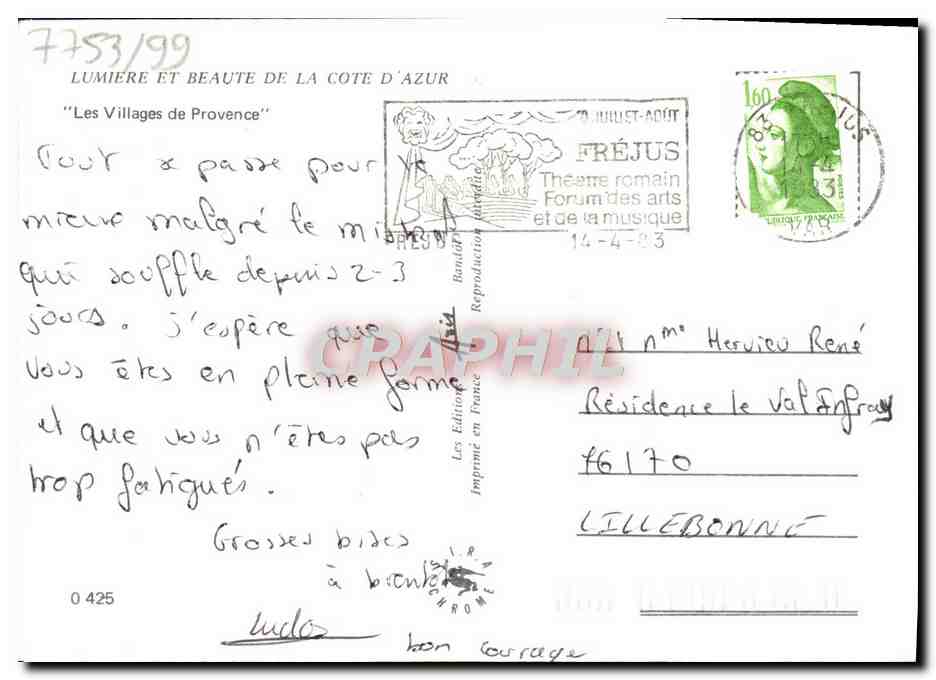 7753/99
LUMIERE ET BEAUTE DE LA COTE D'AZUR
"Les Villages de Provence"
Tout se passe pour le
mieux malgré le mistral
qui souffle depuis 2-3
jours. J'espère que
vous êtes en pleine forme
et que vous n'êtes pas
trop fatigués.
Grosses bises
à bientôt
Ludo
bon courage
0 425
JUILLET-AOÛT
FRÉJUS
Théâtre romain
Forum des arts
et de la musique
FREJUS
14-4-83
1,60
REPUBLIQUE FRANCAISE
83
VAR
Les Editions Aris Bandol
Imprimé en France Reproduction interdite
CPAPHIL
S.I.R.A
CHROME
Mr et Mme Hervieu René
Résidence le Val Infray
76170
LILLEBONNE